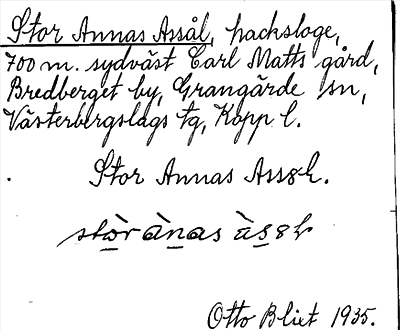 Stor Annas Assål, hacksloge,
700 m. sydväst Carl Matts gård,
Bredberget by, Grangärde sn,
Västerbergslags tg, Kopp l.
Stor Annas
stòr ànas
Otto Blixt 1935.